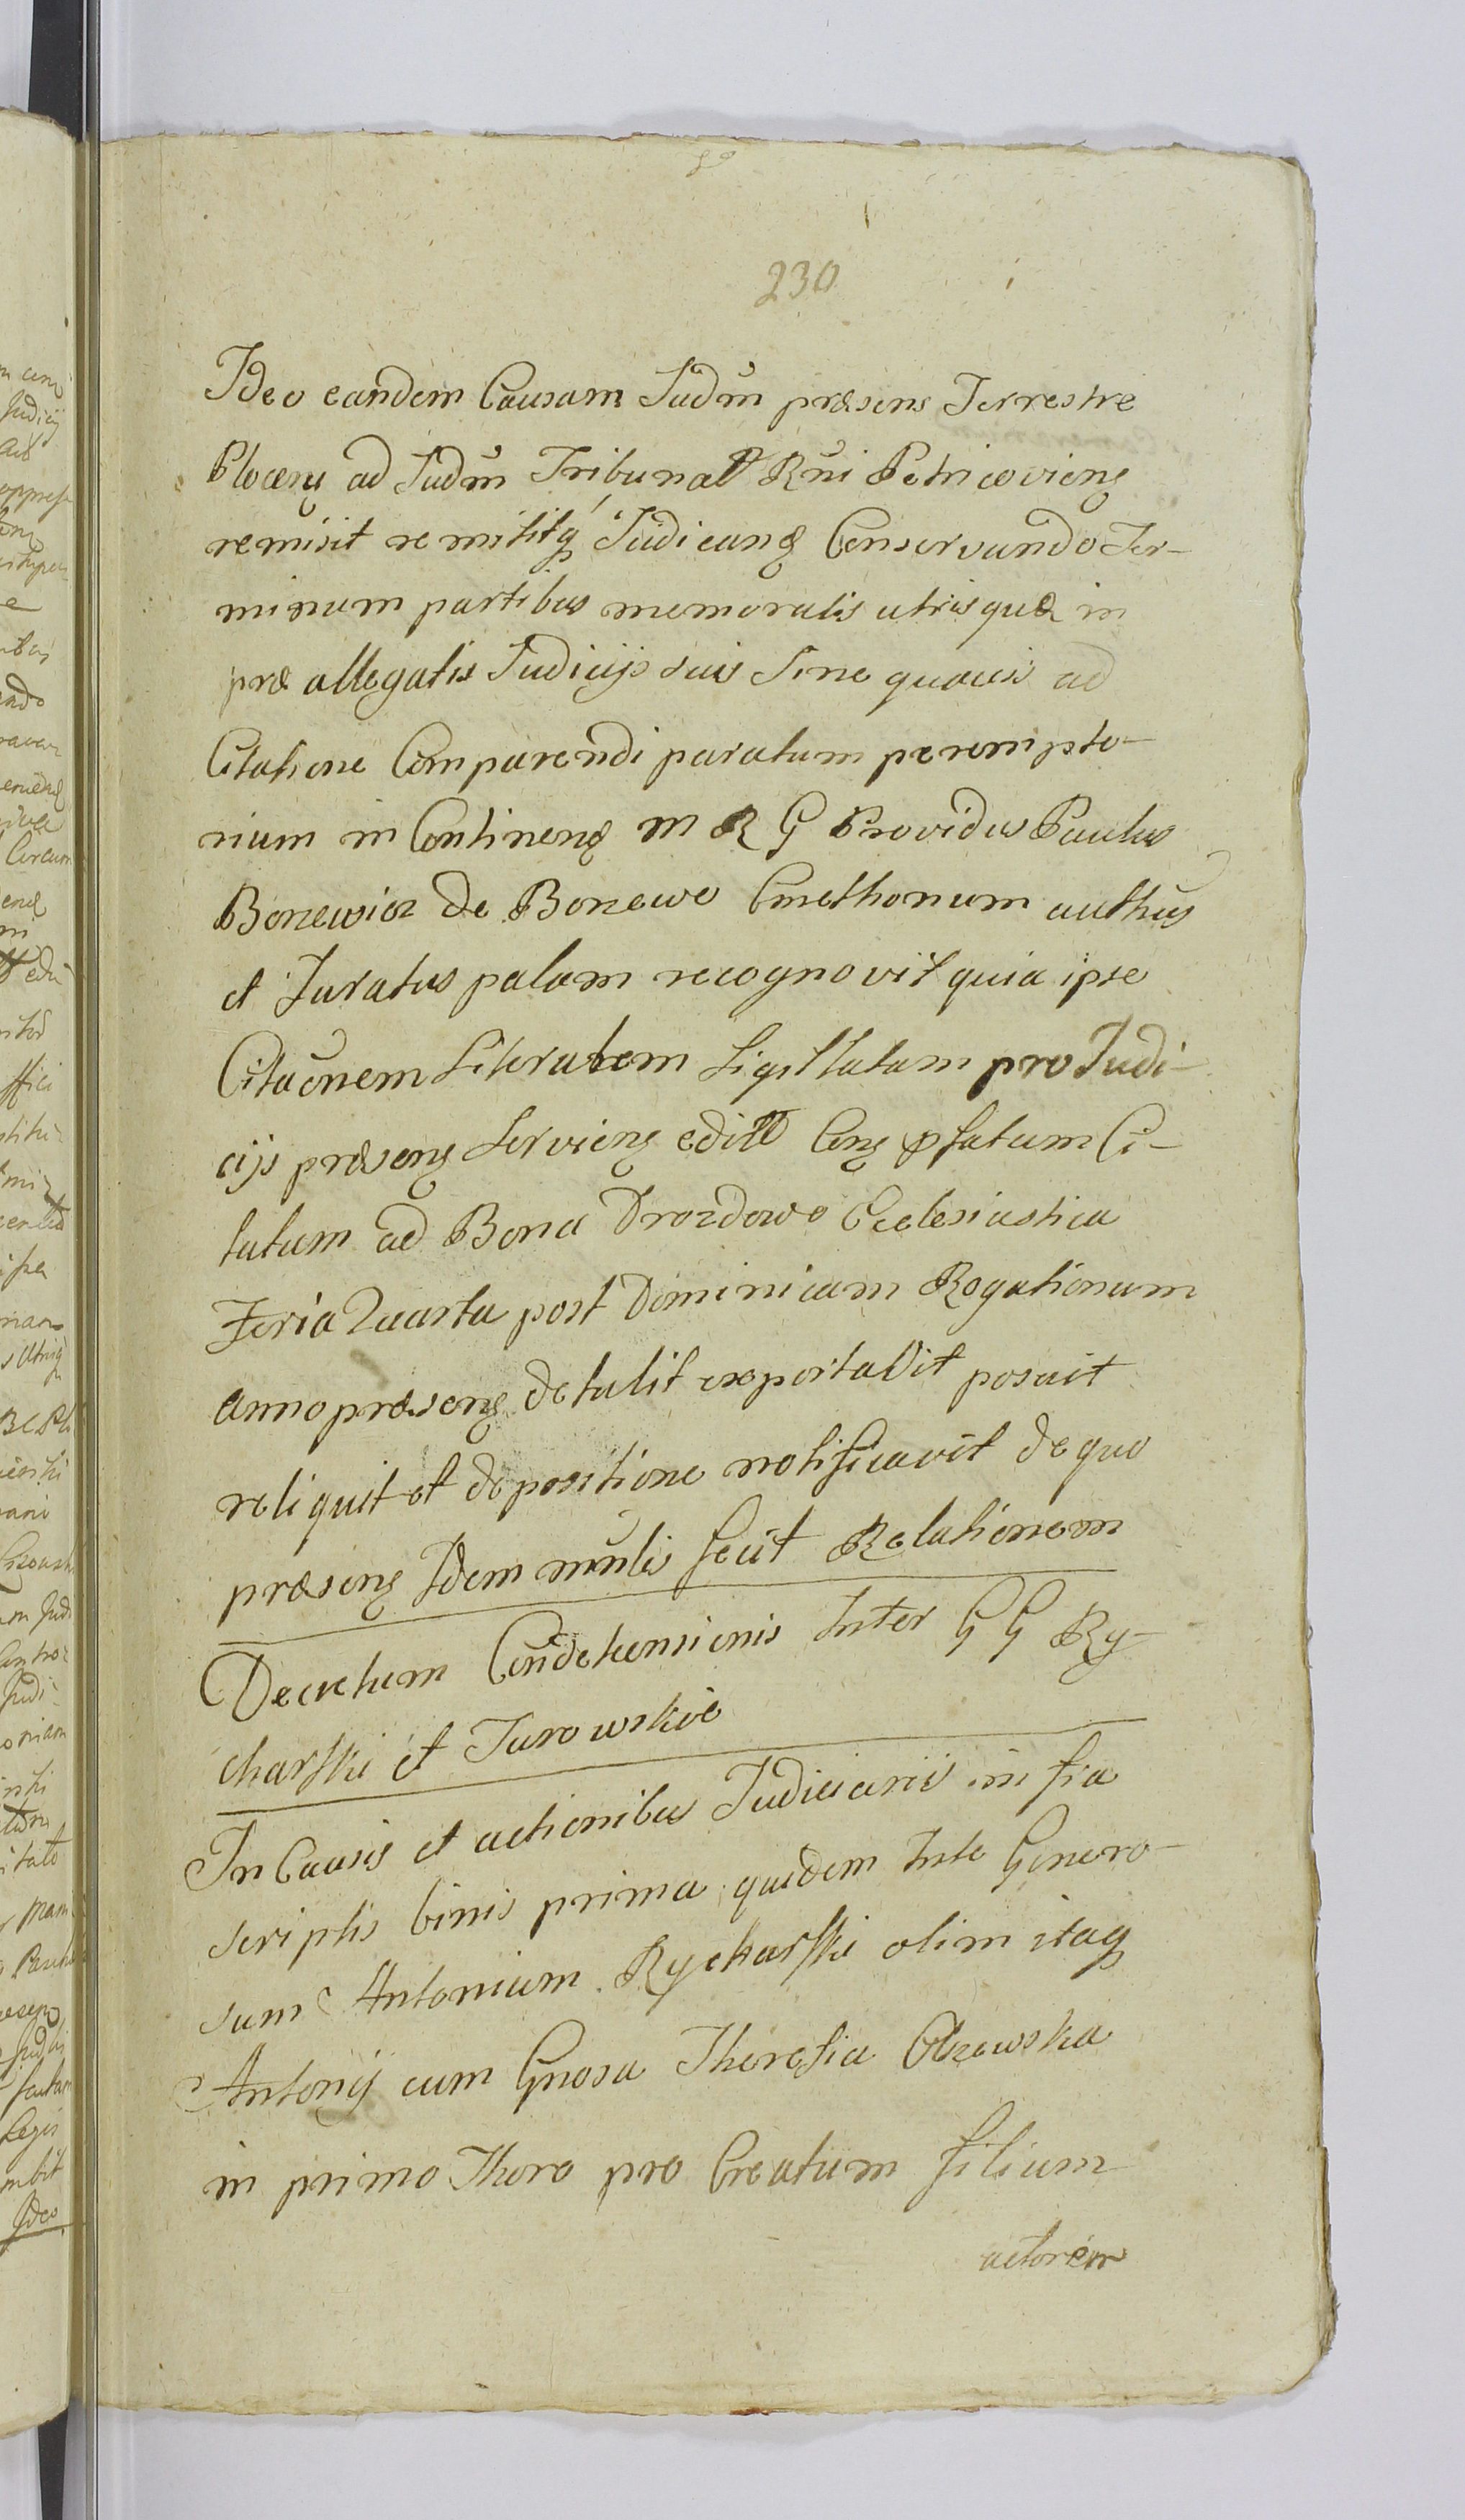 230
Ideo eandem Causam Judm̄ præsens Terrestre
Plocens ad Judm̄ Tribunal Rn̄i Petricoviens
remisit remititq Judicans Conservando Ter-
minum partibus memoratis utrisque in
præ allegatis Judicijs suis Sine quavis ad
Citatione Comparendi paratum perempto-
rium in Continens M R G Providus Paulus
Bonewicz de Bonewo Cmethonum authus
et Juratus palam recognovit quia ipse
Citaōnem Literalem Sigillatam pro Judi-
cijs præsens Serviens edit Cens pfatum Ci-
tatum ad Bona Drozdowo Ecclesiastica
Feria Quarta post Dominicam Rogationum
anno præsens detulit exportavit posuit
reliquit et de positione notificavit de quo
præsens Idem mnlis fecit Relationem
Decretum Condehensionis Inter G G Ry-
charski et Turowskie
In Causis et actionibus Judiciarii infra
scriptis binis prima quidem Inte Genero-
sum Antonium Rycharski olim itaq
Antonij cum Gnosa Theresia
in primo Thoro pro Creatum filium
actorem